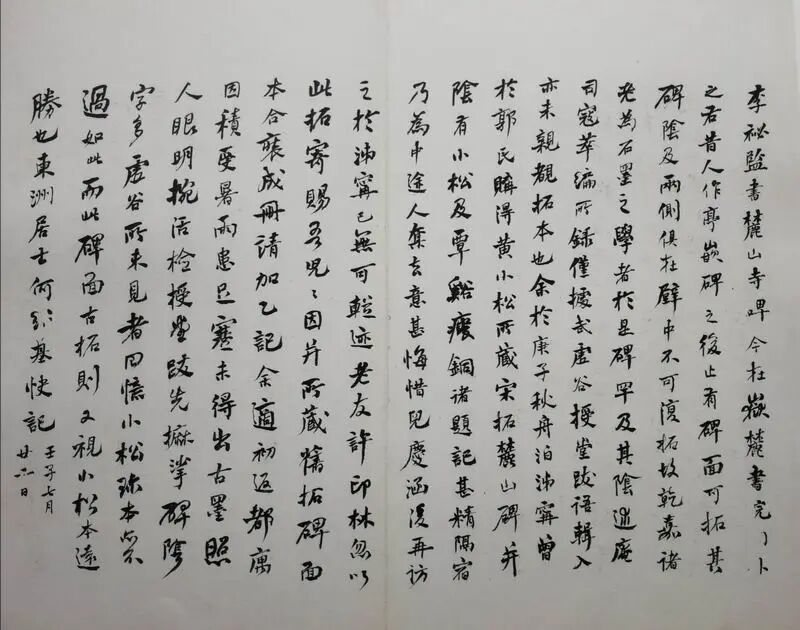 李祕監書麓山寺碑今在嶽麓書完了卜
之右昔人作亭嵌碑之後止有碑面可拓其
碑陰及兩側俱在壁中不可復拓故乾嘉諸
老為石墨之學者於是碑罕及其陰述庵
司寇萃編所録僅據武虛谷授堂跋語輯入
亦未親覩拓本也余於庚子秋舟泊沛甯曾
於郭氏購得黃小松所藏宋拓麓山碑并
陰有小松及覃谿瘦銅諸題記甚精隔宿
乃為中途人奪去意甚悔惜兒慶涵復再訪
之於沛甯已無可蹤迹老友許印林忽以
此拓寄賜吾兒〻因并所藏舊拓碑面
本合裝成冊請加乙記余適初返都寓
因積夏暑雨患足蹇未得出古墨照
人眼明捥活檢授堂跋先摹挲碑陰
字多虛谷所未見者回憶小松珎本當不
過如此而此碑面古拓則又視小松本遠
勝也東洲居士何紹基快記
壬子七月
廿六日